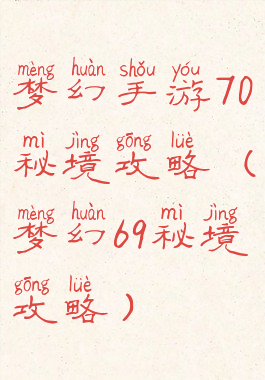 mèng huàn shǒu yóu
梦幻手游70
mì jìng gōng lüè
秘境攻略（
mèng huàn mì jìng
梦幻69秘境
gōng lüè
攻略）